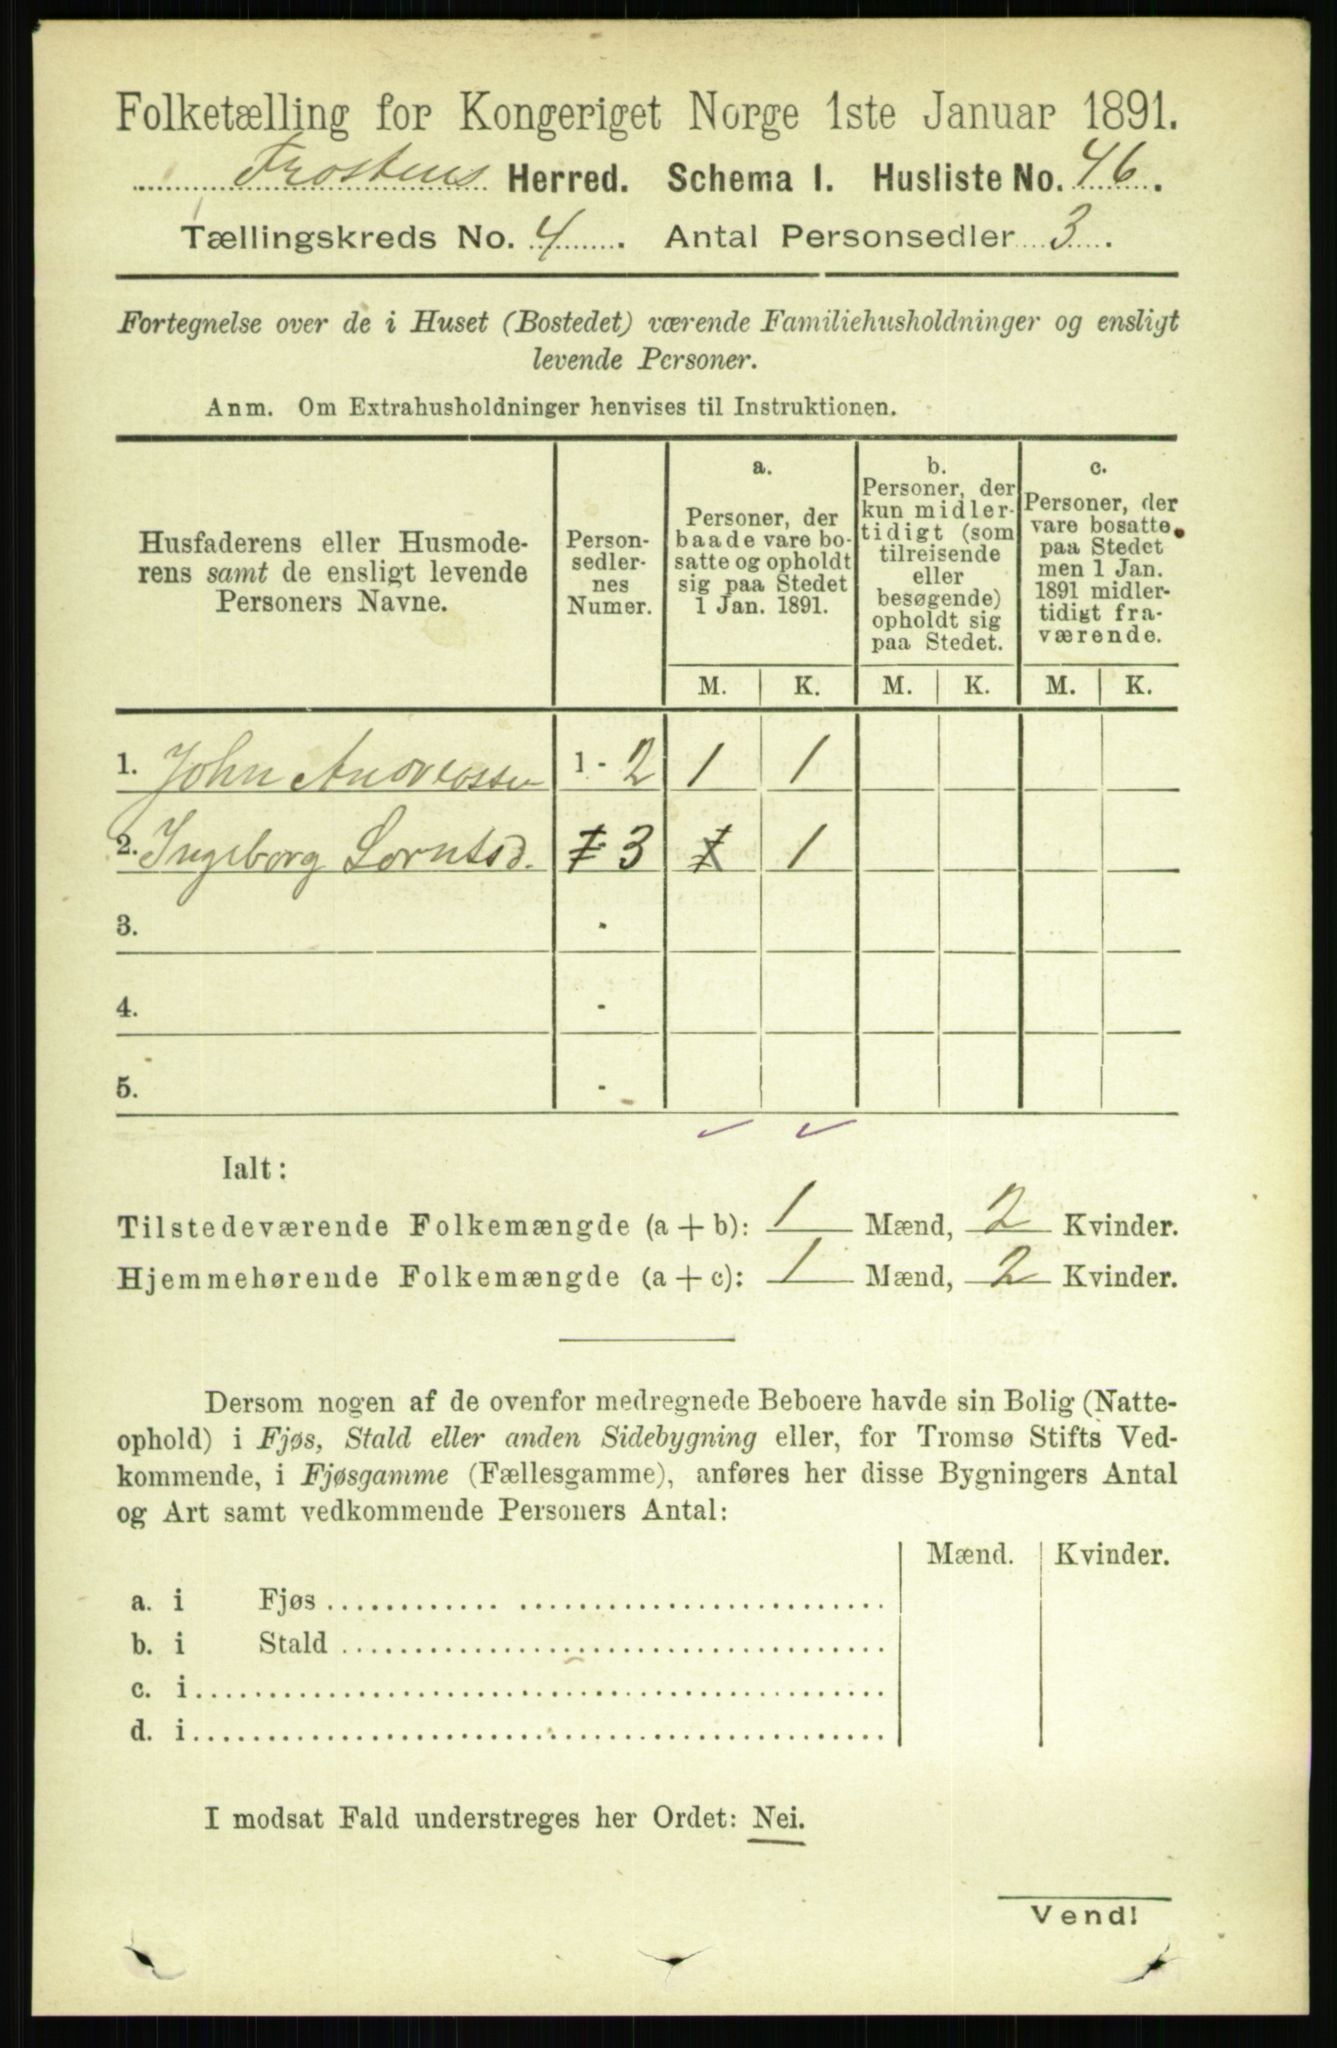 Folketælling for Kongeriget Norge 1ste Januar 1891.
Frostens Herred. Schema I. Husliste No. 46.
Tællingskreds No. 4. Antal Personsedler 3.
Fortegnelse over de i Huset (Bostedet) værende Familiehusholdninger og ensligt
levende Personer.
Anm. Om Extrahusholdninger henvises til Instruktionen.
Husfaderens eller Husmode-
rens samt de ensligt levende
Personers Navne.
Person-
sedler-
nes
Numer.
a.
Personer, der
baade vare bo-
satte og opholdt
sig paa Stedet
1 Jan. 1891.
b.
Personer, der
kun midler-
tidigt (som
tilreisende
eller
besøgende)
opholdt sig
paa Stedet.
c.
Personer, der
vare bosatte
paa Stedet
men 1 Jan.
1891 midler-
tidigt fra-
værende.
M. K. M. K. M. K.
1. John Andreassen 1 - 2 1 1
2. Ingeborg Lorntsd. 3 1
3. -
4. -
5. -
Ialt:
Tilstedeværende Folkemængde (a + b): 1 Mænd, 2 Kvinder.
Hjemmehørende Folkemængde (a + c): 1 Mænd, 2 Kvinder.
Dersom nogen af de ovenfor medregnede Beboere havde sin Bolig (Natte-
ophold) i Fjøs, Stald eller anden Sidebygning eller, for Tromsø Stifts Ved-
kommende, i Fjøsgamme (Fællesgamme), anføres her disse Bygningers Antal
og Art samt vedkommende Personers Antal:
Mænd. Kvinder.
a. i Fjøs
b. i Stald
c. i
d. i
I modsat Fald understreges her Ordet: Nei.
Vend!